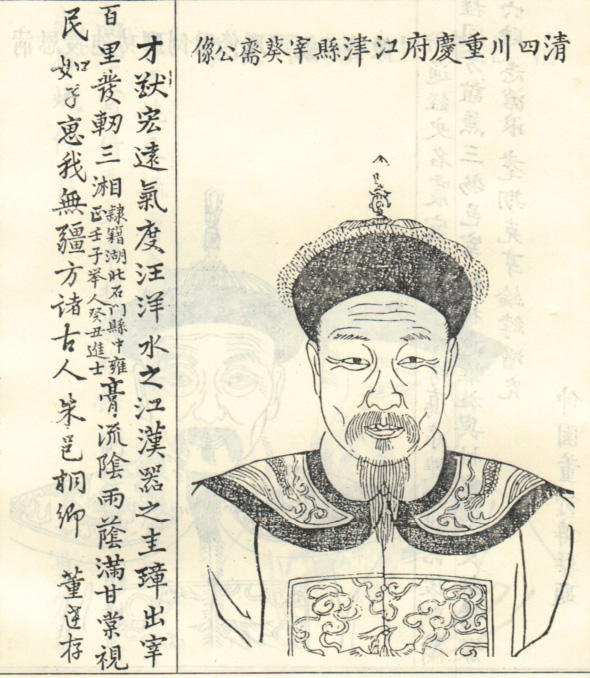 清四川重慶府江津縣宰葵齋公像
才猷宏遠氣度汪洋水之江漢器之圭璋出宰
百里發軔三湘
隸籍湖北石門縣中雍
正壬子舉人癸丑進士
膏流陰雨蔭滿甘棠視
民如子惠我無疆方諸古人朱邑桐鄉 董存